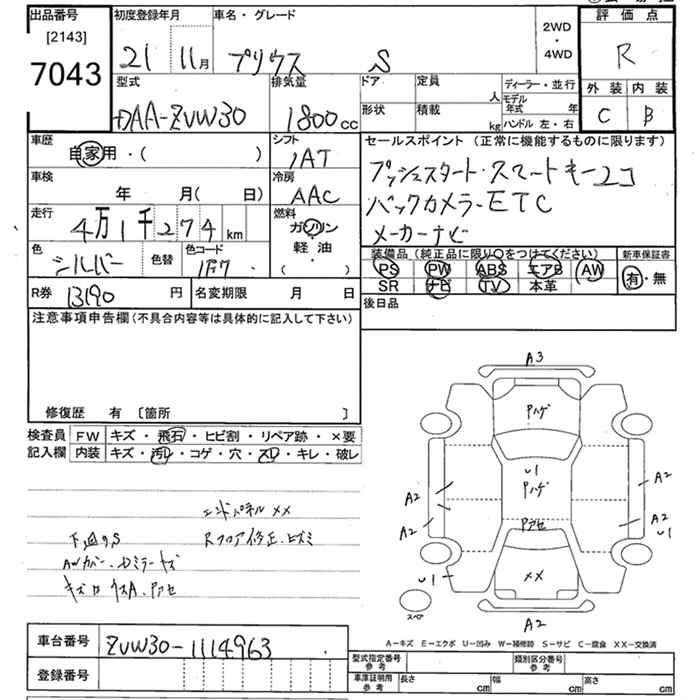 出品番号
[2143]
7043
初度登録年月
21 11月
車名・グレード
プリウス S
2WD
・
4WD
評価点
R
外装 内装
C B
型式
DAA-ZVW30
排気量
1800cc
ドア
形状
定員
人
積載
kg
ディーラー・並行
モデル
年式 年
ハンドル 左・右
車歴
自家用・( )
シフト
IAT
車検
年 月( 日)
冷房
AAC
走行
4万1千274km
燃料
ガソリン
軽油
・
( )
色
シルバー
色替
色コード
1F7
R券 13190円
名変期限 月 日
セールスポイント (正常に機能するものに限ります)
プッシュスタート・スマートキー2コ
バックカメラ・ETC
メーカーナビ
装備品(純正品に限り○をつけてください)
PS PW ABS エアB AW
SR ナビ TV 本革
新車保証書
有・無
後日品
注意事項申告欄(不具合内容等は具体的に記入して下さい)
修復歴 有 [箇所 ]
検査員
記入欄
FW キズ・飛石・ヒビ割・リペア跡・×要
内装 キズ・汚レ・コゲ・穴・スレ・キレ・破レ
エンドパネルXX
下廻りS Rフロア修正・ヒズミ
AWカバー・Dミラーキズ
A3
Pハゲ
U1
Pハゲ
Pアセ
XX
A2
A2
A2
A2
U1
U1
A2
スペア
A-キズ E-エクボ U-凹み W-補修跡 S-サビ C-腐食 XX-交換済
車台番号 ZVW30-1114963
登録番号
型式指定番号
参考
類別区分番号
参考
車庫証明
参考
長さ cm 幅 cm 高さ cm